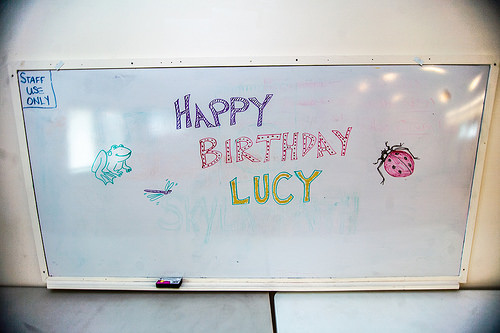 STAFF
USE
ONLY
HAPPY
BIRTHDAY
LUCY